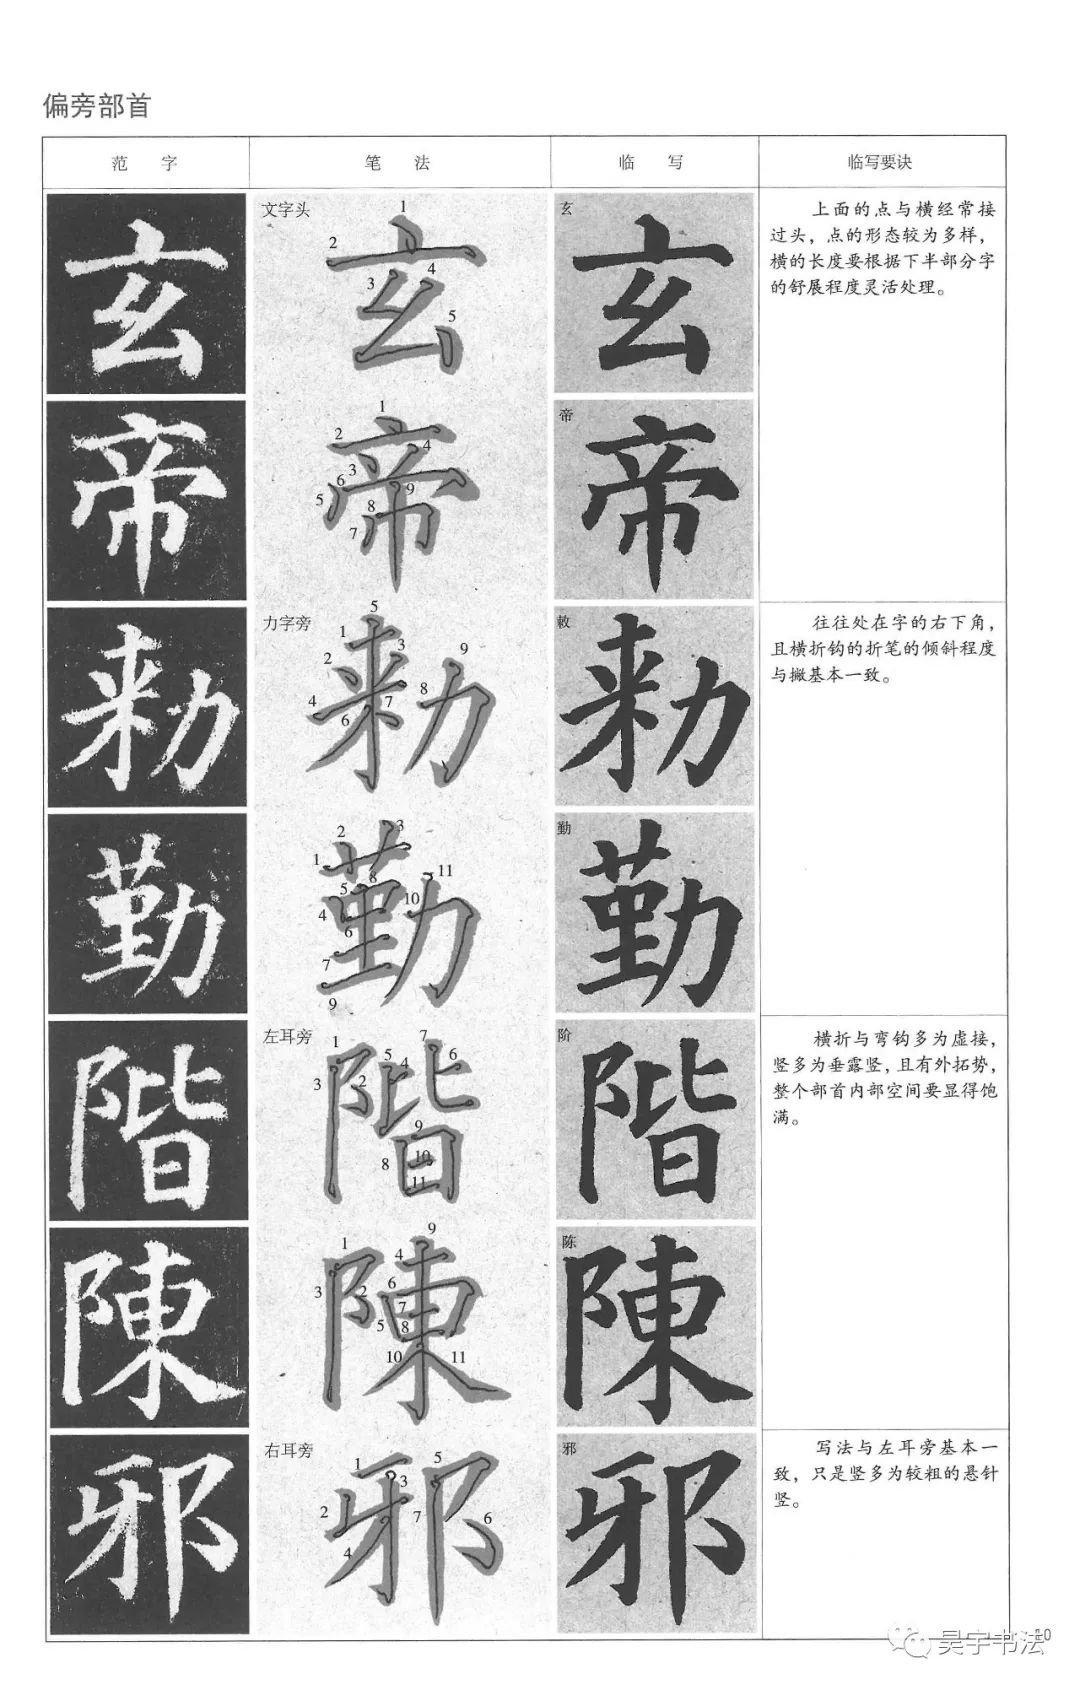 偏旁部首
范 字
笔 法
临 写
临写要诀
玄
文字头
1
2
3
4
5
玄
玄
上面的点与横经常接
过头，点的形态较为多样，
横的长度要根据下半部分字
的舒展程度灵活处理。
帝
1
2
3
4
5
6
7
8
9
帝
帝
帝
勑
力字旁
1
2
3
4
5
6
7
8
9
勑
敕
勑
往往处在字的右下角，
且横折钩的折笔的倾斜程度
与撇基本一致。
勤
1
2
3
4
5
6
7
8
9
10
11
勤
勤
勤
階
左耳旁
1
2
3
4
5
6
7
8
9
10
11
階
阶
階
横折与弯钩多为虚接，
竖多为垂露竖，且有外拓势，
整个部首内部空间要显得饱
满。
陳
1
2
3
4
5
6
7
8
9
10
11
陳
陈
陳
邪
右耳旁
1
2
3
4
5
6
7
邪
邪
邪
写法与左耳旁基本一
致，只是竖多为较粗的悬针
竖。
昊宇书法